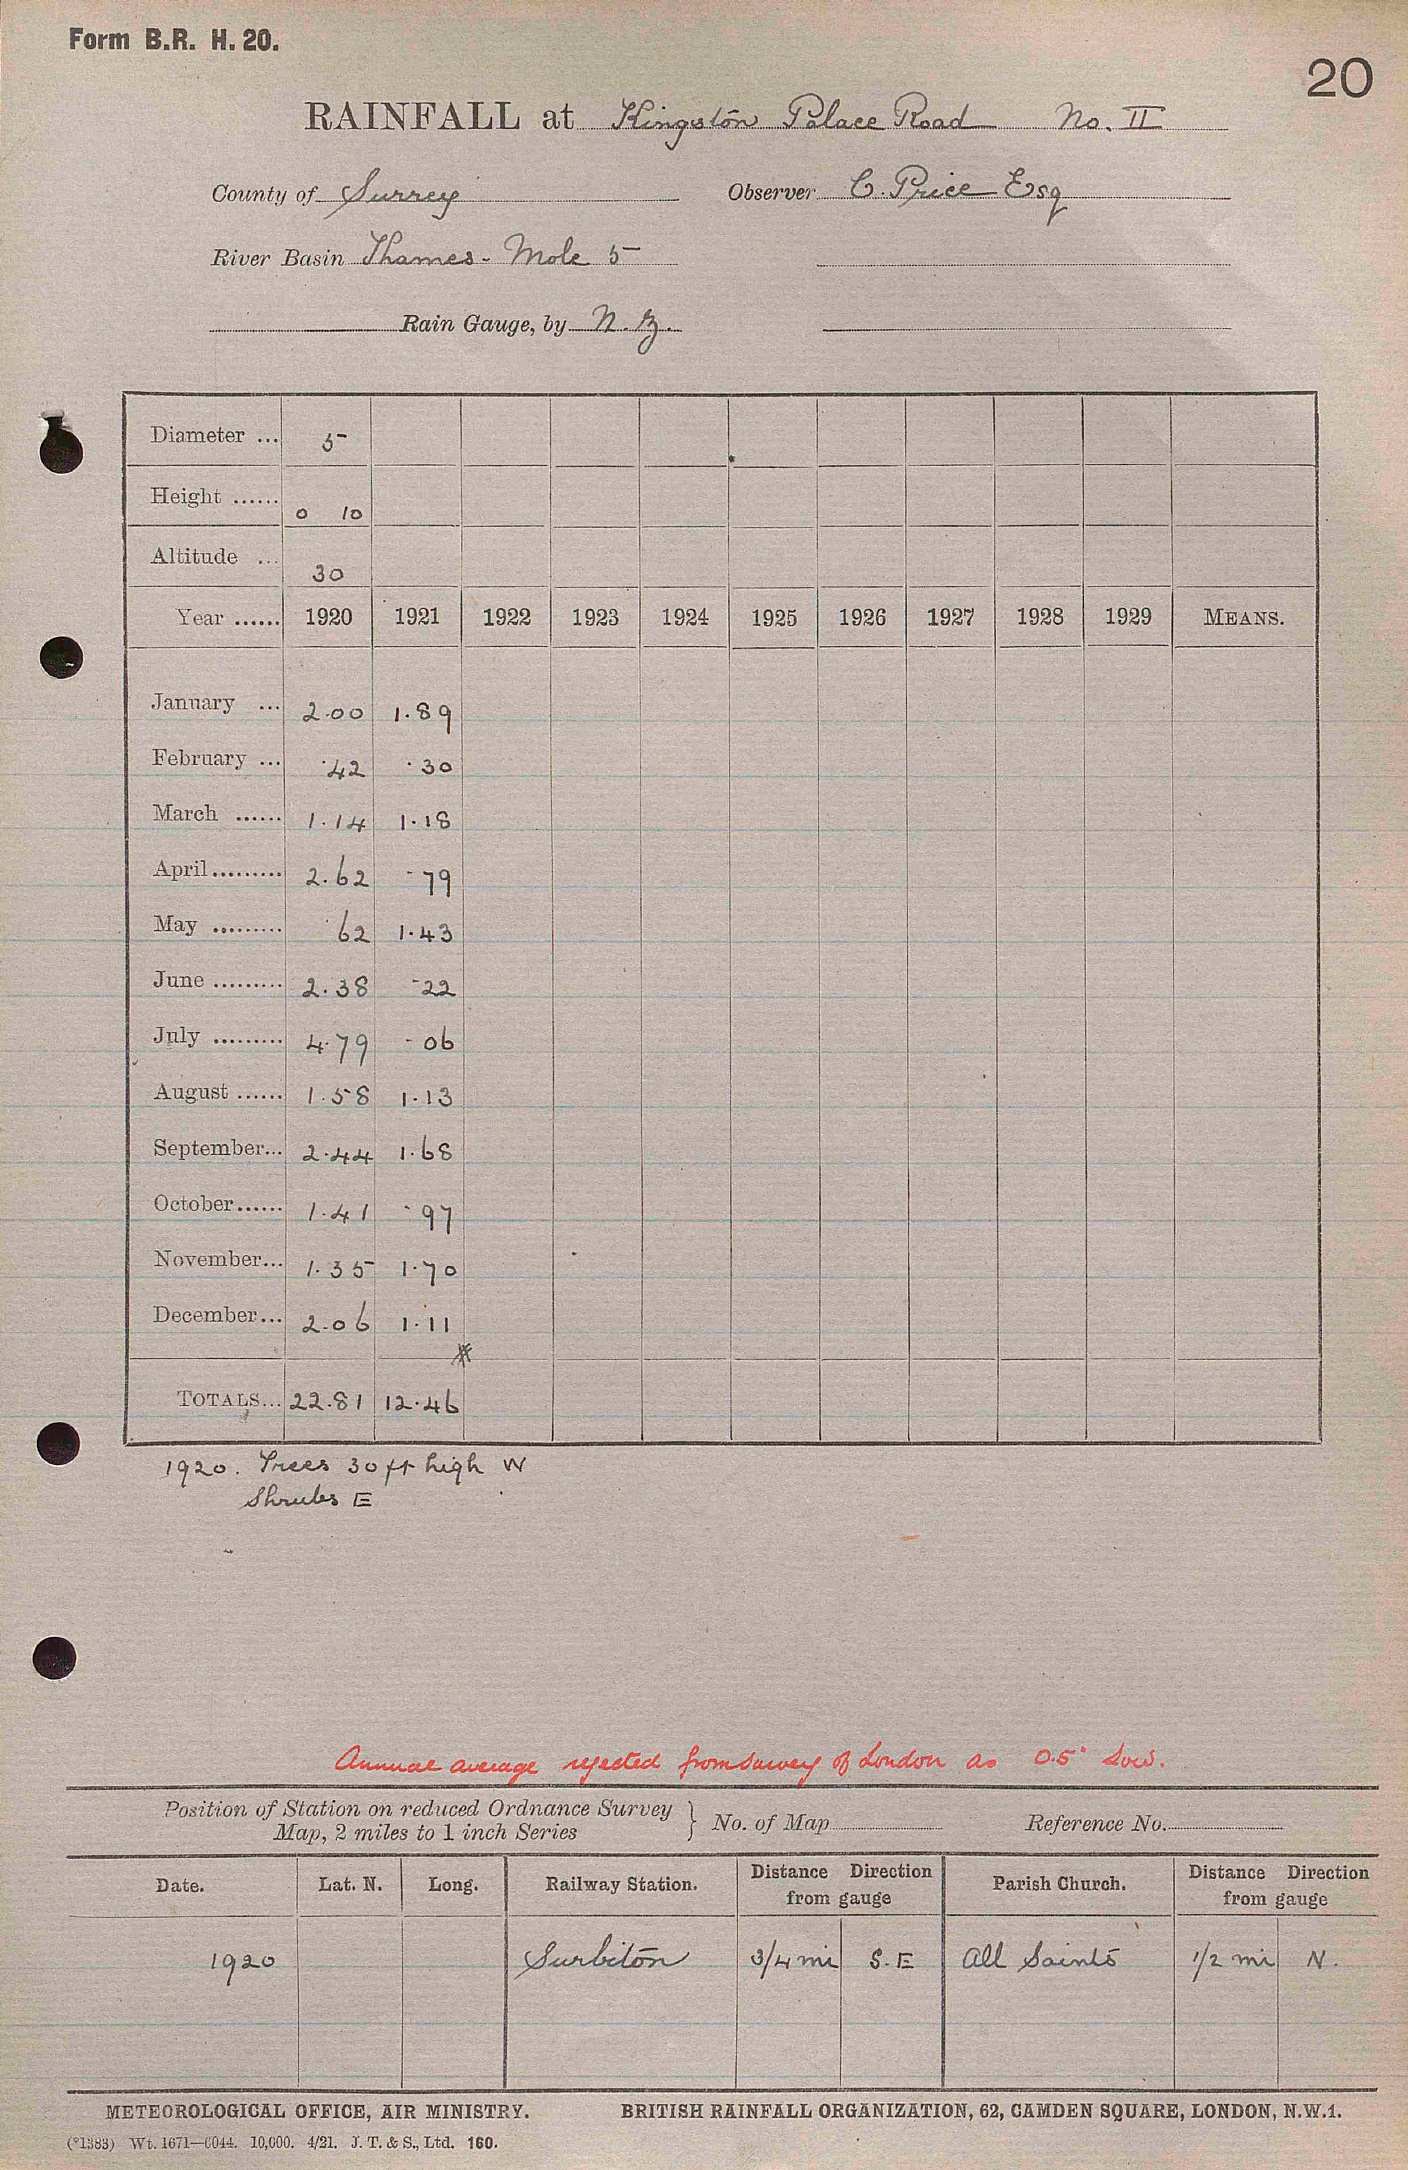 Form B.R. H. 20.
20
RAINFALL at Kingston Palace Road No. II
County of Surrey Observer C. Price Esq
River Basin Thames - Mole 5
Rain Gauge, by N. Z.
Diameter ... 5
Height ...... 0 10
Altitude ... 30
Year ...... 1920 1921 1922 1923 1924 1925 1926 1927 1928 1929 MEANS.
January ... 2.00 1.89
February ... .42 .30
March ...... 1.14 1.18
April ......... 2.62 .79
May ......... .62 1.43
June ......... 2.38 .22
July ......... 4.79 .06
August ...... 1.58 1.13
September... 2.44 1.68
October...... 1.41 .97
November... 1.35 1.70
December... 2.06 1.11
*
TOTALS... 22.81 12.46
1920. Trees 30 ft high W
Shrubs E
Annual average rejected from survey of London as 0.5" low.
Position of Station on reduced Ordnance Survey
Map, 2 miles to 1 inch Series } No. of Map Reference No.
Date. Lat. N. Long. Railway Station. Distance Direction from gauge Parish Church. Distance Direction from gauge
1920 Surbiton 3/4 mi S.E All Saints 1/2 mi N.
METEOROLOGICAL OFFICE, AIR MINISTRY. BRITISH RAINFALL ORGANIZATION, 62, CAMDEN SQUARE, LONDON, N.W.1.
(*1383) Wt. 1671—6044. 10,000. 4/21. J. T. & S., Ltd. 160.